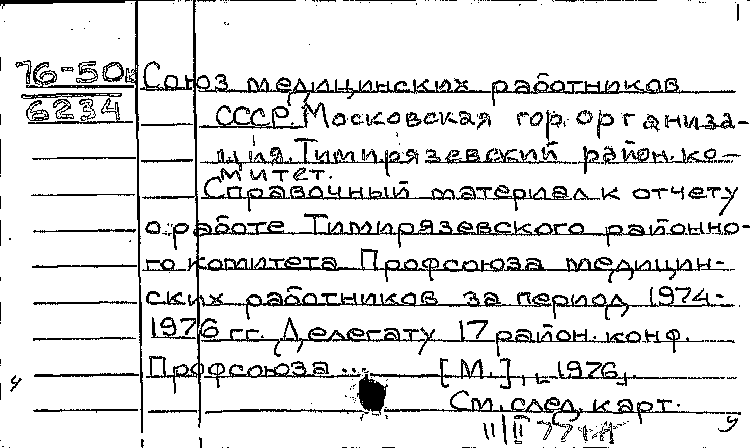 76-50к Союз медицинских работников
6234 СССР. Московская гор. организа-
ция. Тимирязевский район. ко-
митет.
Справочный материал к отчету
о работе Тимирязевского районно-
го комитета Профсоюза медицин-
ских работников за период 1974-
1976 гг. Делегату 17 район. конф.
Профсоюза ... [М.], 1976.
См. след. карт.